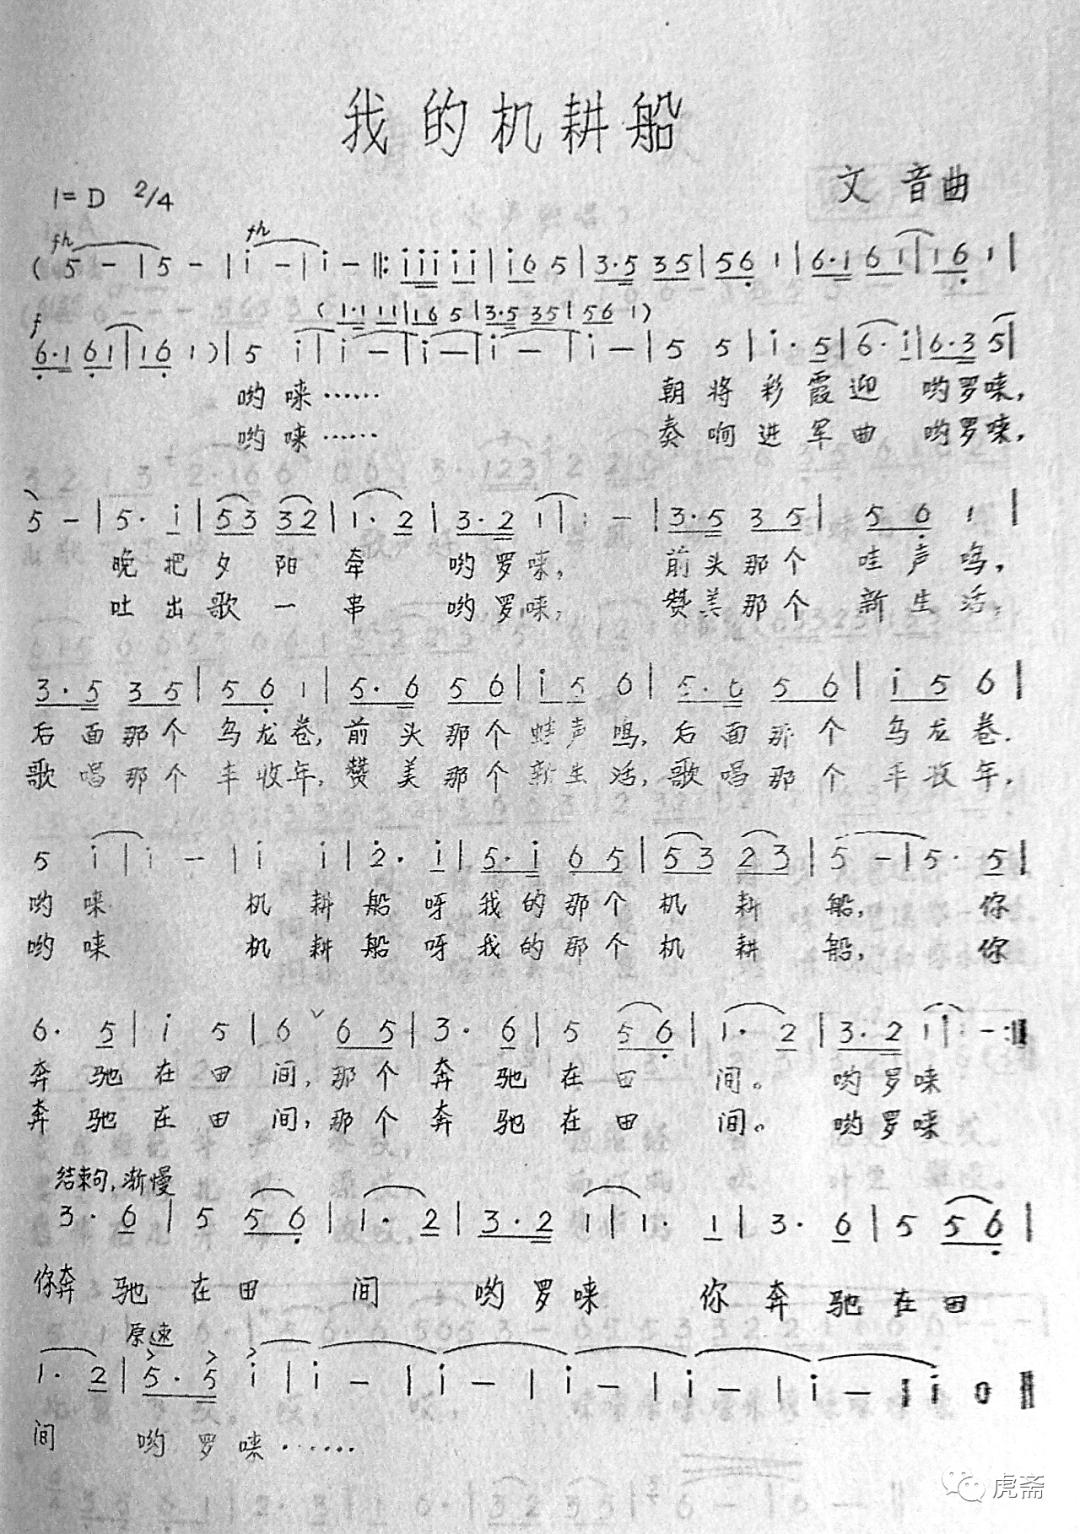 我的机耕船
1=D 2/4
文音曲
fh fh
( 5 - | 5 - | i - | i - ‖: i i i i i | i 6 5 | 3·5 3 5 | 5 6 1 | 6·1 6 1 | 1 6 1 |
f ( 1·1 1 1 | 1 6 5 | 3·5 3 5 | 5 6 1 )
6·1 6 1 | 1 6 1 ) | 5 i | i - | i - | i - | i - | 5 5 | i· 5 | 6· i | 6·3 5 |
哟唻…… 朝将彩霞迎 哟罗唻,
哟唻…… 奏响进军曲 哟罗唻,
5 - | 5· i | 5 3 3 2 | 1· 2 | 3·2 1 | : - | 3·5 3 5 | 5 6 1 |
晚把夕阳牵 哟罗唻, 前头那个哇声鸣,
吐出歌一串 哟罗唻, 赞美那个新生活,
3·5 3 5 | 5 6 1 | 5·6 5 6 | i 5 6 | 5·6 5 6 | i 5 6 |
后面那个乌龙卷,前头那个蛙声鸣,后面那个乌龙卷.
歌唱那个丰收年,赞美那个新生活,歌唱那个丰收年.
5 i | i - | i i | 2· i | 5·i 6 5 | 5 3 2 3 | 5 - | 5· 5 |
哟唻 机耕船呀我的那个机耕船, 你
哟唻 机耕船呀我的那个机耕船, 你
6· 5 | i 5 | 6 ˅ 6 5 | 3· 6 | 5 5 6 | 1· 2 | 3·2 1 | 1 - :‖
奔驰在田间,那个奔驰在田间。哟罗唻
奔驰在田间,那个奔驰在田间。哟罗唻
结束句,渐慢
3· 6 | 5 5 6 | 1· 2 | 3·2 1 | 1· 1 | 3· 6 | 5 5 6 |
你奔驰在田间 哟罗唻 你奔驰在田
原速
1· 2 | 5·5 i | i - | i - | i - | i - | i - | i 0 ‖
间 哟罗唻……
虎斋